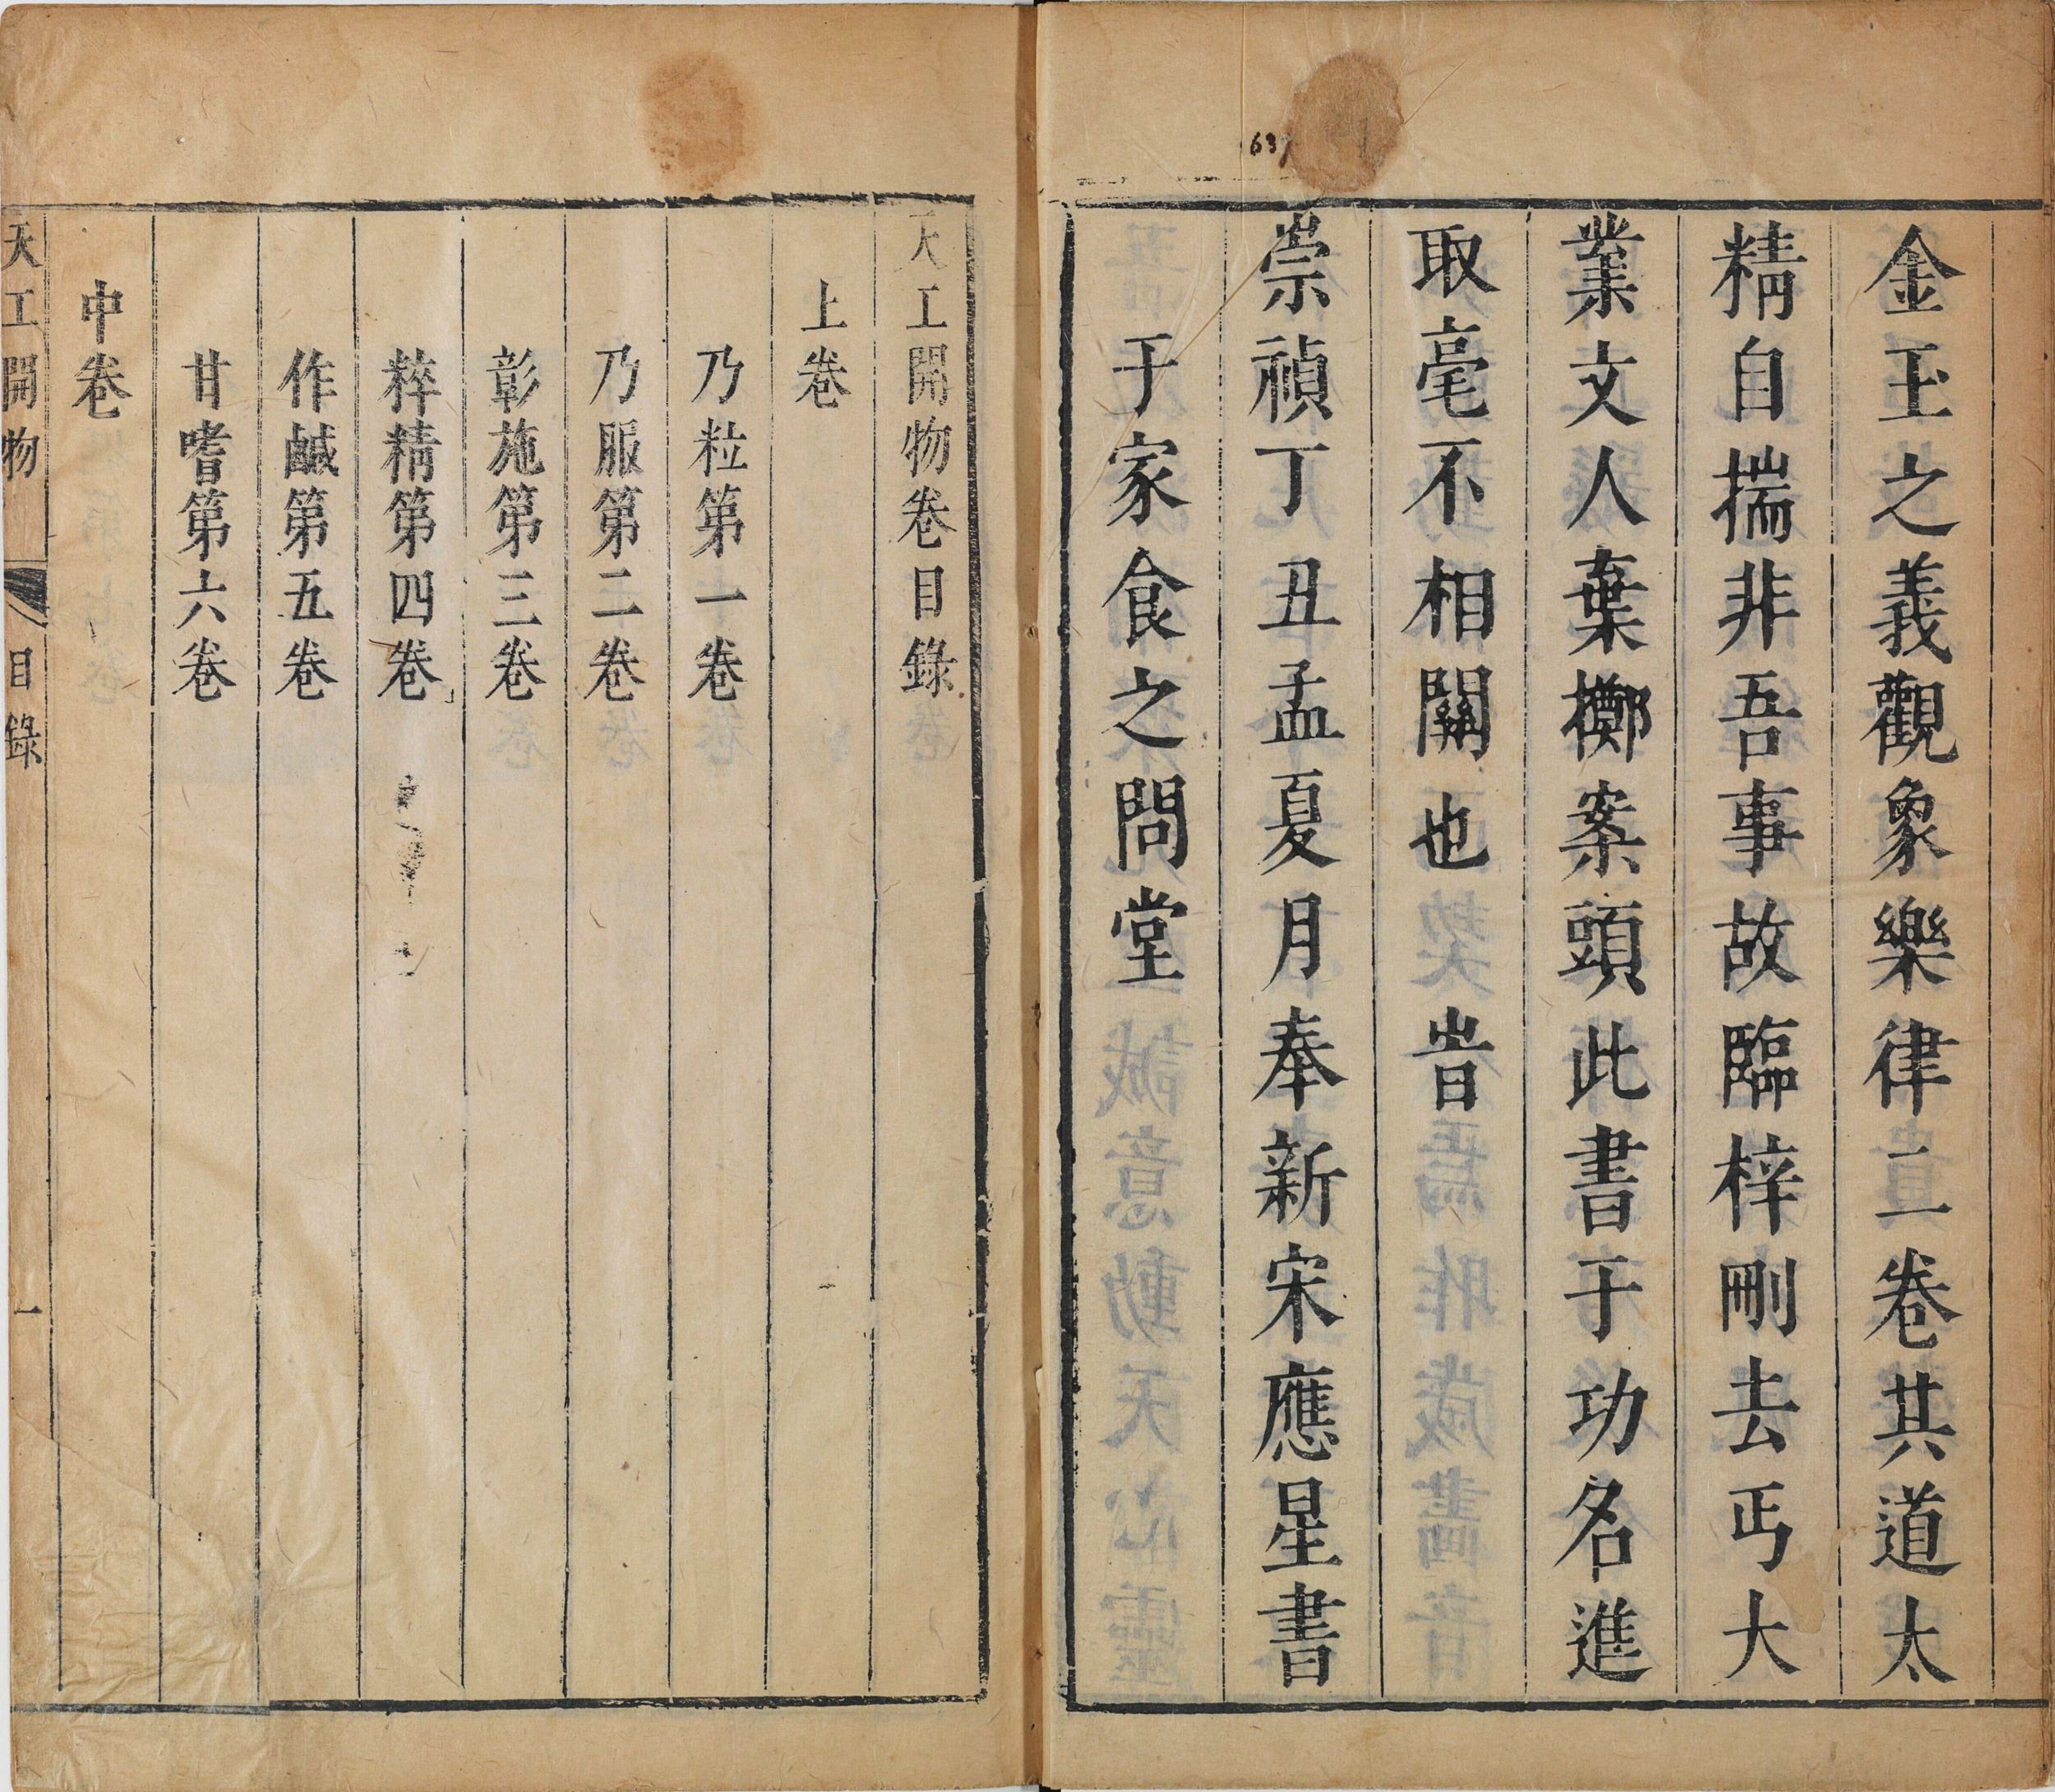 金玉之義觀象樂律二卷其道太
精自揣非吾事故臨梓刪去丐大
業文人棄擲案頭此書于功名進
取毫不相關也 旹
崇禎丁丑孟夏月奉新宋應星書
于家食之問堂
天工開物卷目錄
上卷
乃粒第一卷
乃服第二卷
彰施第三卷
粹精第四卷
作鹹第五卷
甘嗜第六卷
中卷
天工開物 目錄 一